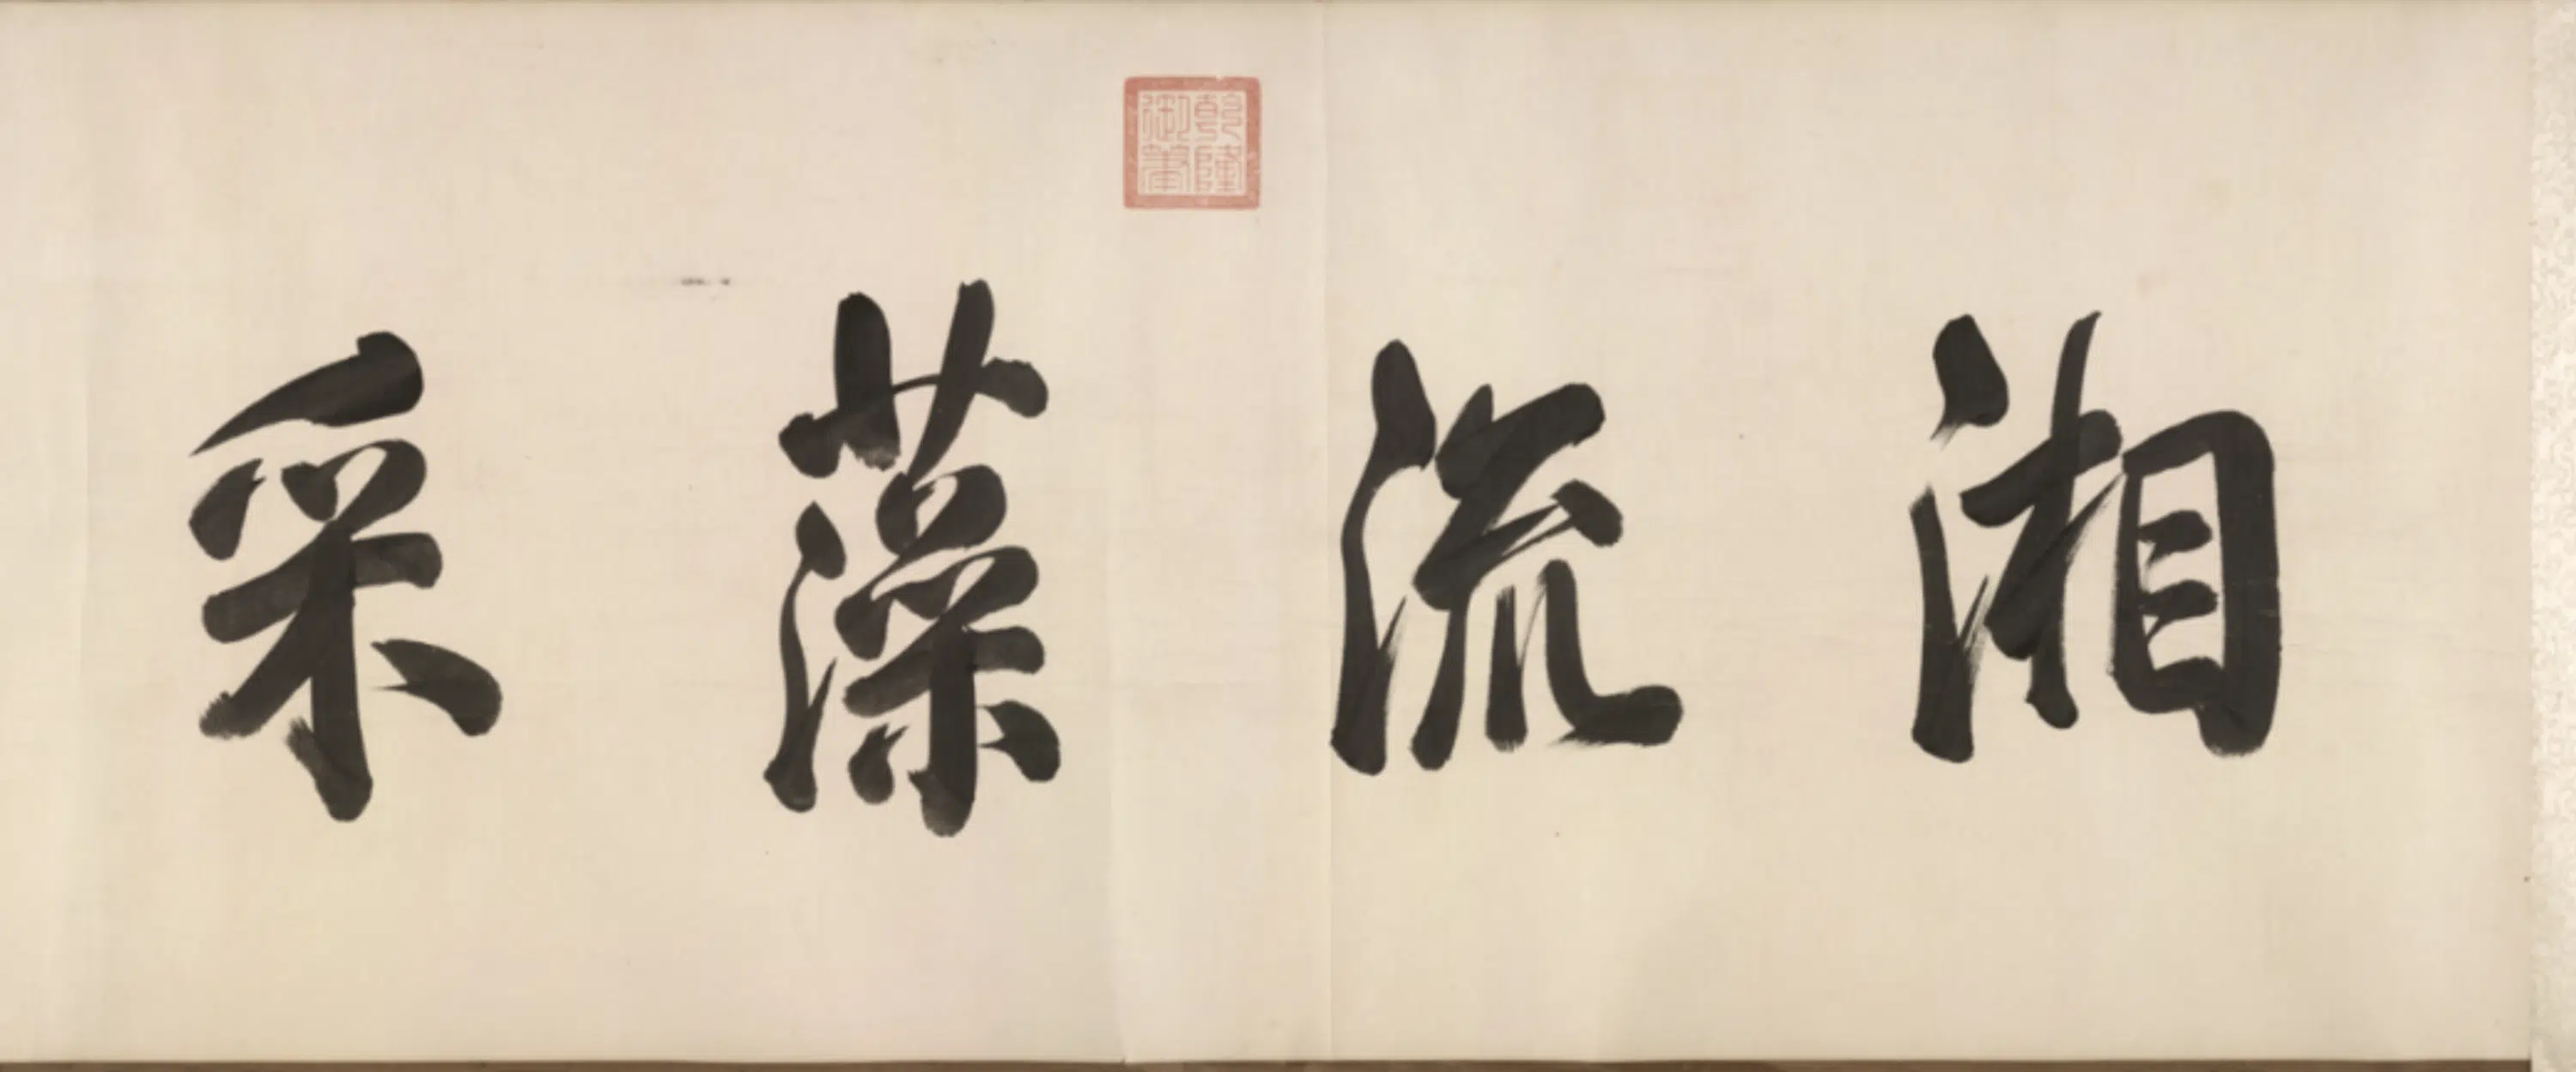 湘流藻采
乾隆
御筆